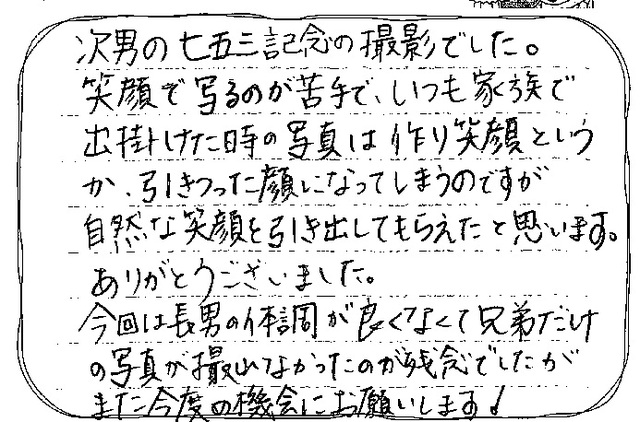 次男の七五三記念の撮影でした。
笑顔で写るのが苦手で、いつも家族で
出掛けた時の写真は作り笑顔という
か、引きつった顔になってしまうのですが
自然な笑顔を引き出してもらえたと思います。
ありがとうございました。
今回は長男の体調が良くなくて兄弟だけ
の写真が撮れなかったのが残念でしたが
また今度の機会にお願いします!